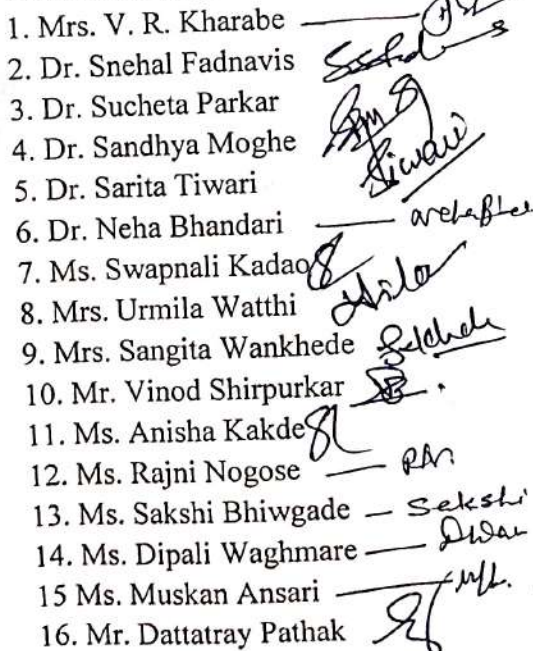 1. Mrs. V. R. Kharabe
2. Dr. Snehal Fadnavis
3. Dr. Sucheta Parkar
4. Dr. Sandhya Moghe
5. Dr. Sarita Tiwari Tiwari
6. Dr. Neha Bhandari
7. Ms. Swapnali Kadao
8. Mrs. Urmila Watthi
9. Mrs. Sangita Wankhede
10. Mr. Vinod Shirpurkar
11. Ms. Anisha Kakde
12. Ms. Rajni Nogose
13. Ms. Sakshi Bhiwgade — Sakshi
14. Ms. Dipali Waghmare
15 Ms. Muskan Ansari
16. Mr. Dattatray Pathak